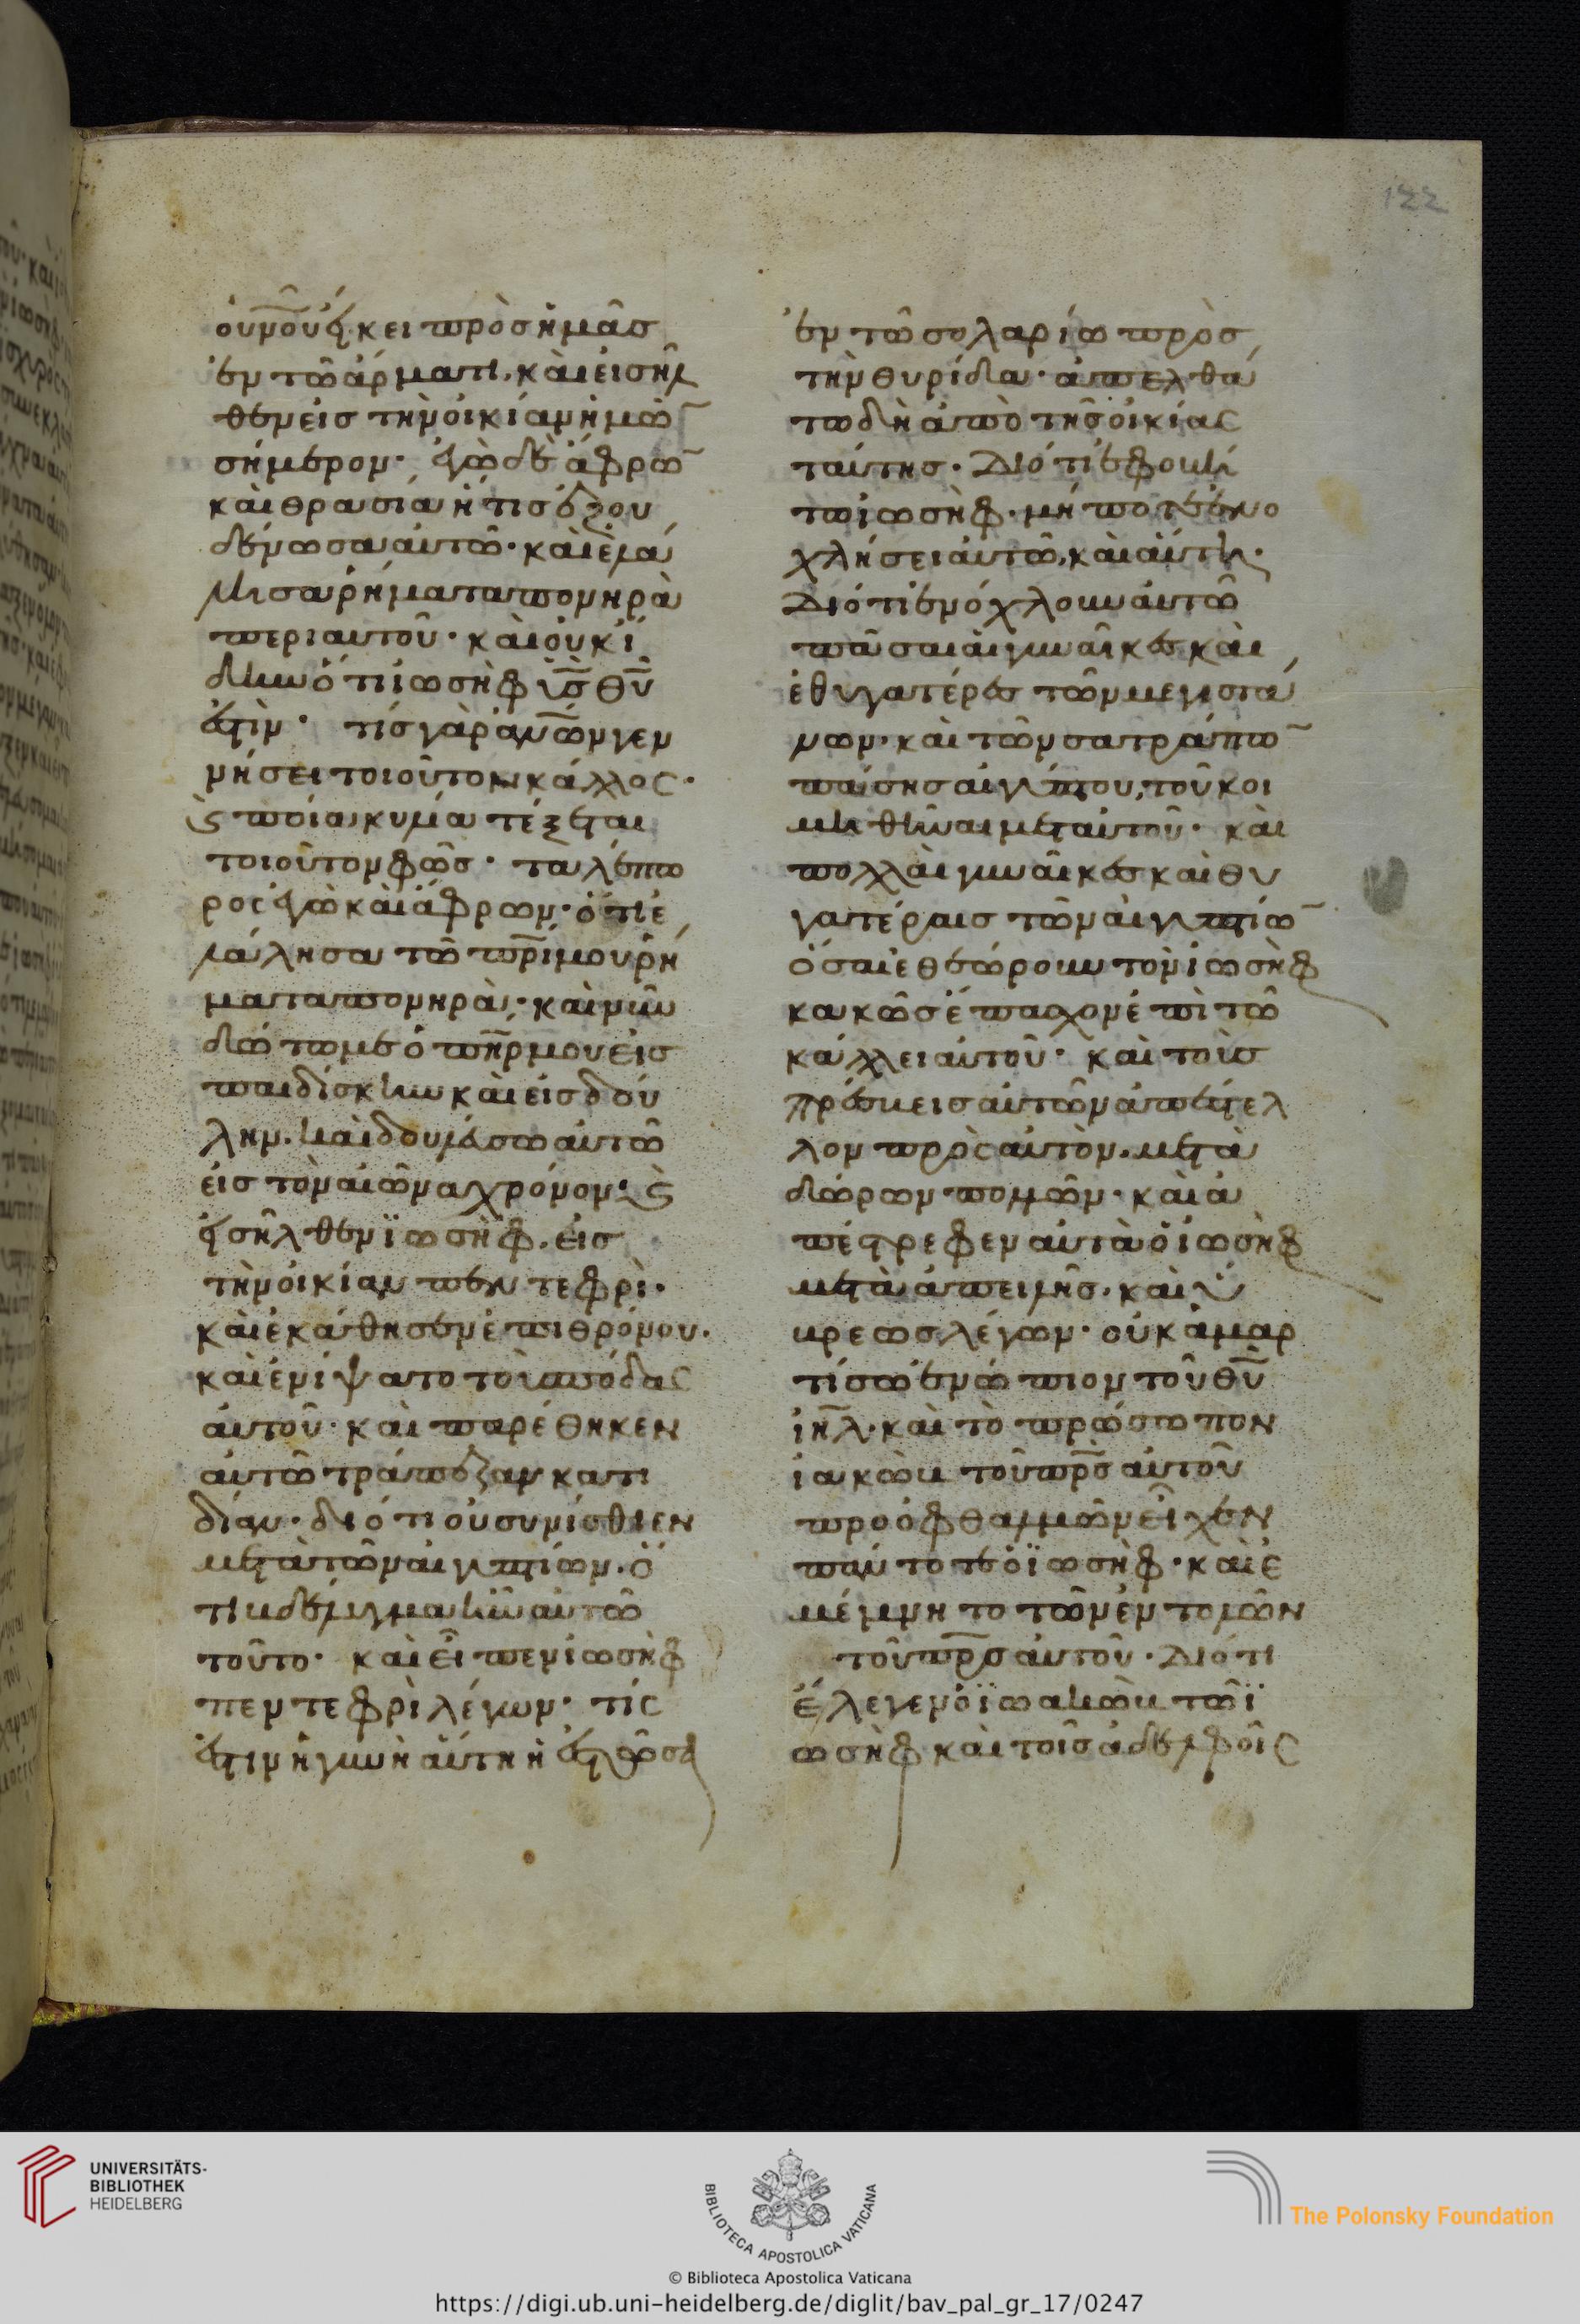 οὐνοῦ ἥκει πρὸς ἡμᾶς
ἐν τῶ ἅρματι. καὶ εἰσῆλ
θεν εἰς τὴν οἰκίαν ἡμῶ̄
σήμερον· ἐγὼ δὲ ἄφρω̄
καὶ θρασία ἥτις ἐξου
δένωσα αὐτῶ· καὶ ἐλά
λησα ῥήματα πονηρὰ
περὶ αὐτοῦ· καὶ οὐκ ἴ
δην ὅτι ἰωσὴφ υἱ̅ς̅ θ̅υ̅
ἐστὶν· τίς γὰρ α̅ν̅ω̅ν γεν
νήσει τοιοῦτον κάλλος·
ϛ ποία κυλία τέξεται
τοιοῦτον φῶς· ταλέπω
ρος ἐγὼ καὶ ἄφρων· ὅτι ἐ
λάλησα τῶ π̅ρ̅ί μου ῥή
ματα πονηρὰ· καὶ νῦν
δώτω με ὁ π̅η̅ρ μου εἰς
παιδίσκην καὶ εἰς δού
λην. καὶ δουλεύσω αὐτῶ
εἰς τὸν αἰῶνα χρόνον· ϛ
εἰσῆλθεν ϊωσὴφ. εἰς
τὴν οἰκίαν πεντεφρὶ·
καὶ ἐκάθησεν ἐπὶ θρόνου.
καὶ ἐνίψατο τοὺς πόδας
αὐτοῦ· καὶ παρέθηκεν
αὐτῶ τράπεζαν κατι
δίαν· διότι οὐ συνίσθιεν
μετὰ τῶν αἰγυπτίων. ὅ
τι βδέλυγμα ἦν αὐτῶ
τοῦτο· καὶ εἶπεν ἰωσὴφ
πεντεφρὶ λέγων· τίς
ἐστιν ἡ γυνὴ αὕτη ἡ ἐστῶσα
ἐν τῶ σολαρίω πρὸς
τὴν θυρίδα· ἀπελθά
τω δὴ ἀπὸ τῆς οἰκίας
ταύτης. Διότι ἐφοβεῖ
τω ἰωσὴφ. μή ποτε ἐνο
χλήσει αὐτῶ. καὶ αὕτη·
Διότι ἐνόχλουν αὐτῶ
πᾶσαι αἱ γυναῖκες καὶ
ἑ θυγατέρες τῶν μεγιστά
νων. καὶ τῶν σατράπω̄
πάσης αἰγύπτου, τοῦ κοι
μηθῆναι μετ αὐτοῦ· καὶ
πολλαὶ γυναῖκες καὶ θυ
γατέραις τῶν αἰγυπτίω̄
ὅσαι ἐθεώρουν τὸν ἰωσὴφ
κακῶς ἔπασχον ἐπὶ τῶ
κάλλει αὐτοῦ· καὶ τοὺς
πρέσβεις αὐτῶν ἀπέστελ
λον πρὸς αὐτὸν. μετὰ
δώρων πολλῶν· καὶ ἀ
πέστρεφεν αὐτὰ ὁ ἰωσὴφ
μετὰ ἀπειλῆς. καὶ ὕ
βρεως λέγων· οὐκ ἁμαρ
τίσω ἐνώπιον τοῦ θ̅υ̅
ἰ̅η̅λ. καὶ τὸ πρώσωπον
ἰακὼβ τοῦ π̅ρ̅ς αὐτοῦ
πρὸ ὀφθαλμῶν εἶχεν
πάντοτε ὁ ϊωσὴφ. καὶ ἐ
μέμνητο τῶν ἐντολῶν
τοῦ π̅ρ̅ς αὐτοῦ. Διότι
ἔλεγεν ὁ ϊωακὼβ τῶ ϊ
ωσὴφ καὶ τοῖς ἀδελφοῖς
122
UNIVERSITÄTS-
BIBLIOTHEK
HEIDELBERG
BIBLIOTECA APOSTOLICA VATICANA
The Polonsky Foundation
© Biblioteca Apostolica Vaticana
https://digi.ub.uni-heidelberg.de/diglit/bav_pal_gr_17/0247